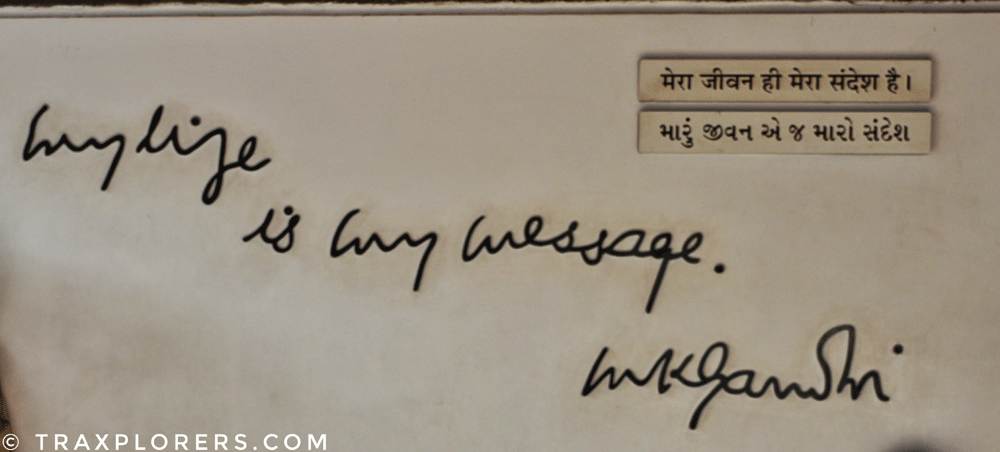 मेरा जीवन ही मेरा संदेश है।
મારું જીવન એ જ મારો સંદેશ
my life
is my message.
MKGandhi
© TRAXPLORERS.COM